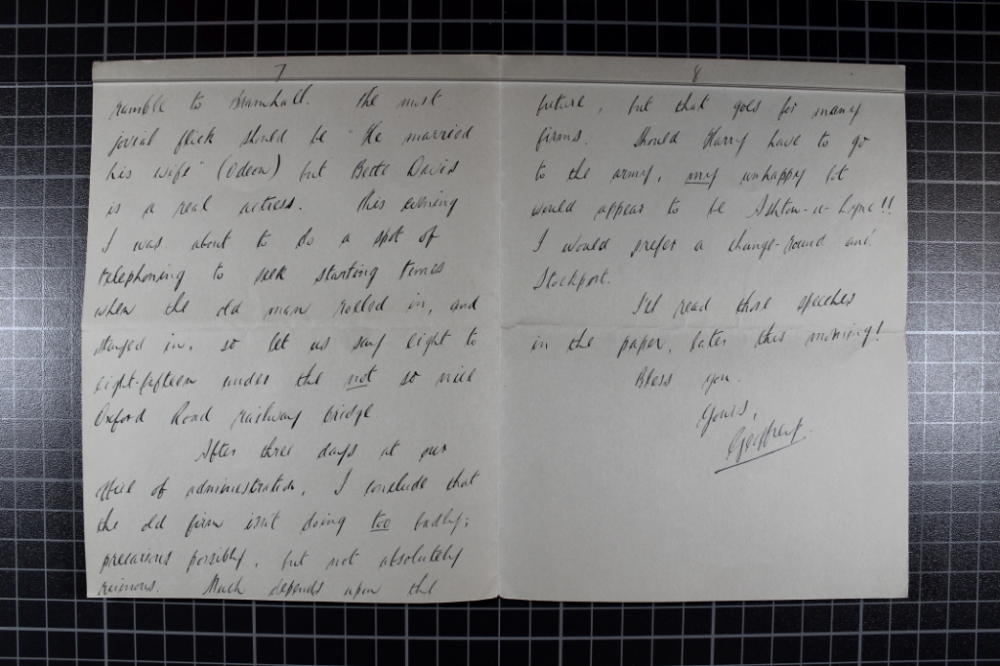 7
ramble to Bramhall. The most
jovial flick should be "He married
his wife" (Odeon) but Bette Davis
is a real actress. This evening
I was about to do a spot of
telephoning to seek starting times
when the old man rolled in, and
stayed in, so let us say eight to
eight-fifteen under the not so nice
Oxford Road railway bridge.
After three days at our
office of administration, I conclude that
the old firm isn't doing too badly;
precarious possibly, but not absolutely
ruinous. Much depends upon the
8
future, but that goes for many
firms. Should Harry have to go
to the army, my unhappy lot
would appear to be Ashton-u-Lyne!!
I would prefer a change-round and
Stockport.
I'll read those speeches
in the paper, later this morning!
Bless you.
Yours,
Geoffrey.